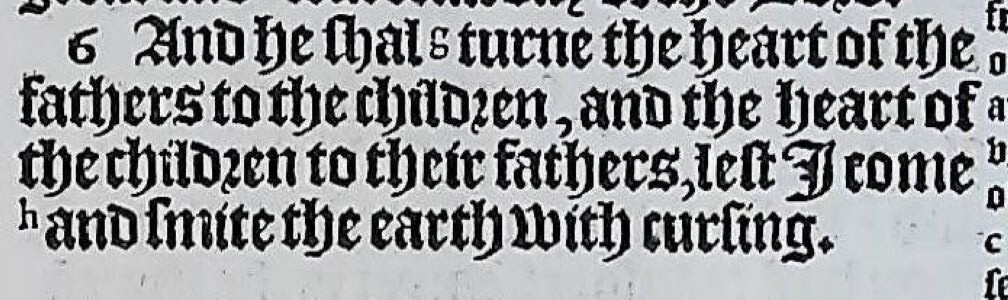 6 And he ſhal g turne the heart of the
fathers to the children, and the heart of
the children to their fathers, leſt I come
h and ſmite the earth with curſing.